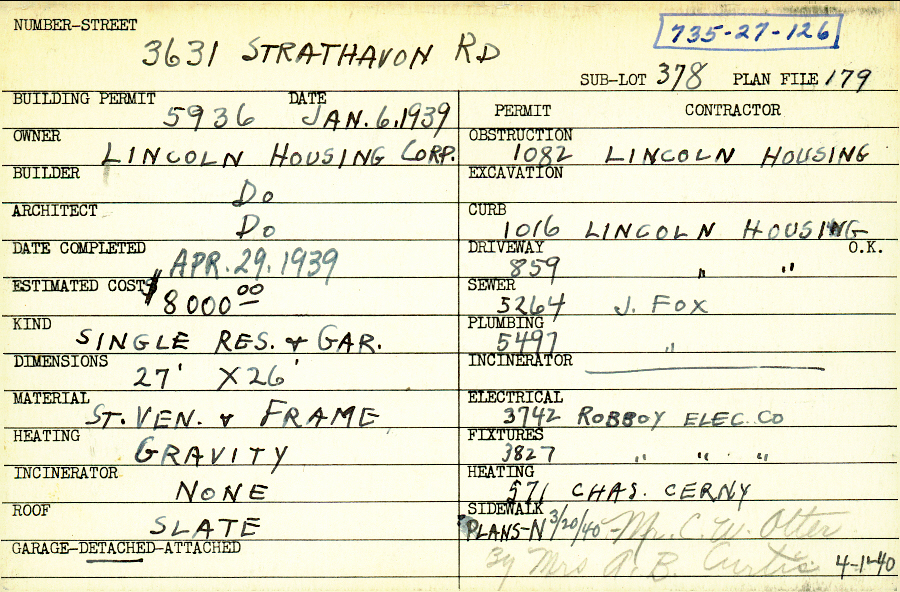 NUMBER-STREET
3631 STRATHAVON RD
735-27-126
SUB-LOT 378 PLAN FILE 179
BUILDING PERMIT 5936 DATE JAN. 6, 1939
OWNER LINCOLN HOUSING CORP.
BUILDER Do
ARCHITECT Do
DATE COMPLETED APR. 29, 1939
ESTIMATED COST $ 8000.00
KIND SINGLE RES. & GAR.
DIMENSIONS 27' X 26'
MATERIAL ST. VEN. & FRAME
HEATING GRAVITY
INCINERATOR NONE
ROOF SLATE
GARAGE-DETACHED-ATTACHED
PERMIT CONTRACTOR
OBSTRUCTION 1082 LINCOLN HOUSING
EXCAVATION
CURB 1016 LINCOLN HOUSING
DRIVEWAY 859 " " O.K.
SEWER 5264 J. FOX
PLUMBING 5497 "
INCINERATOR
ELECTRICAL 3742 ROBBOY ELEC. CO
FIXTURES 3827 " " "
HEATING 571 CHAS. CERNY
SIDEWALK
PLANS-N 3/20/40 - Mr. C. W. Otter
By Mrs A. B. Curtis 4-1-40